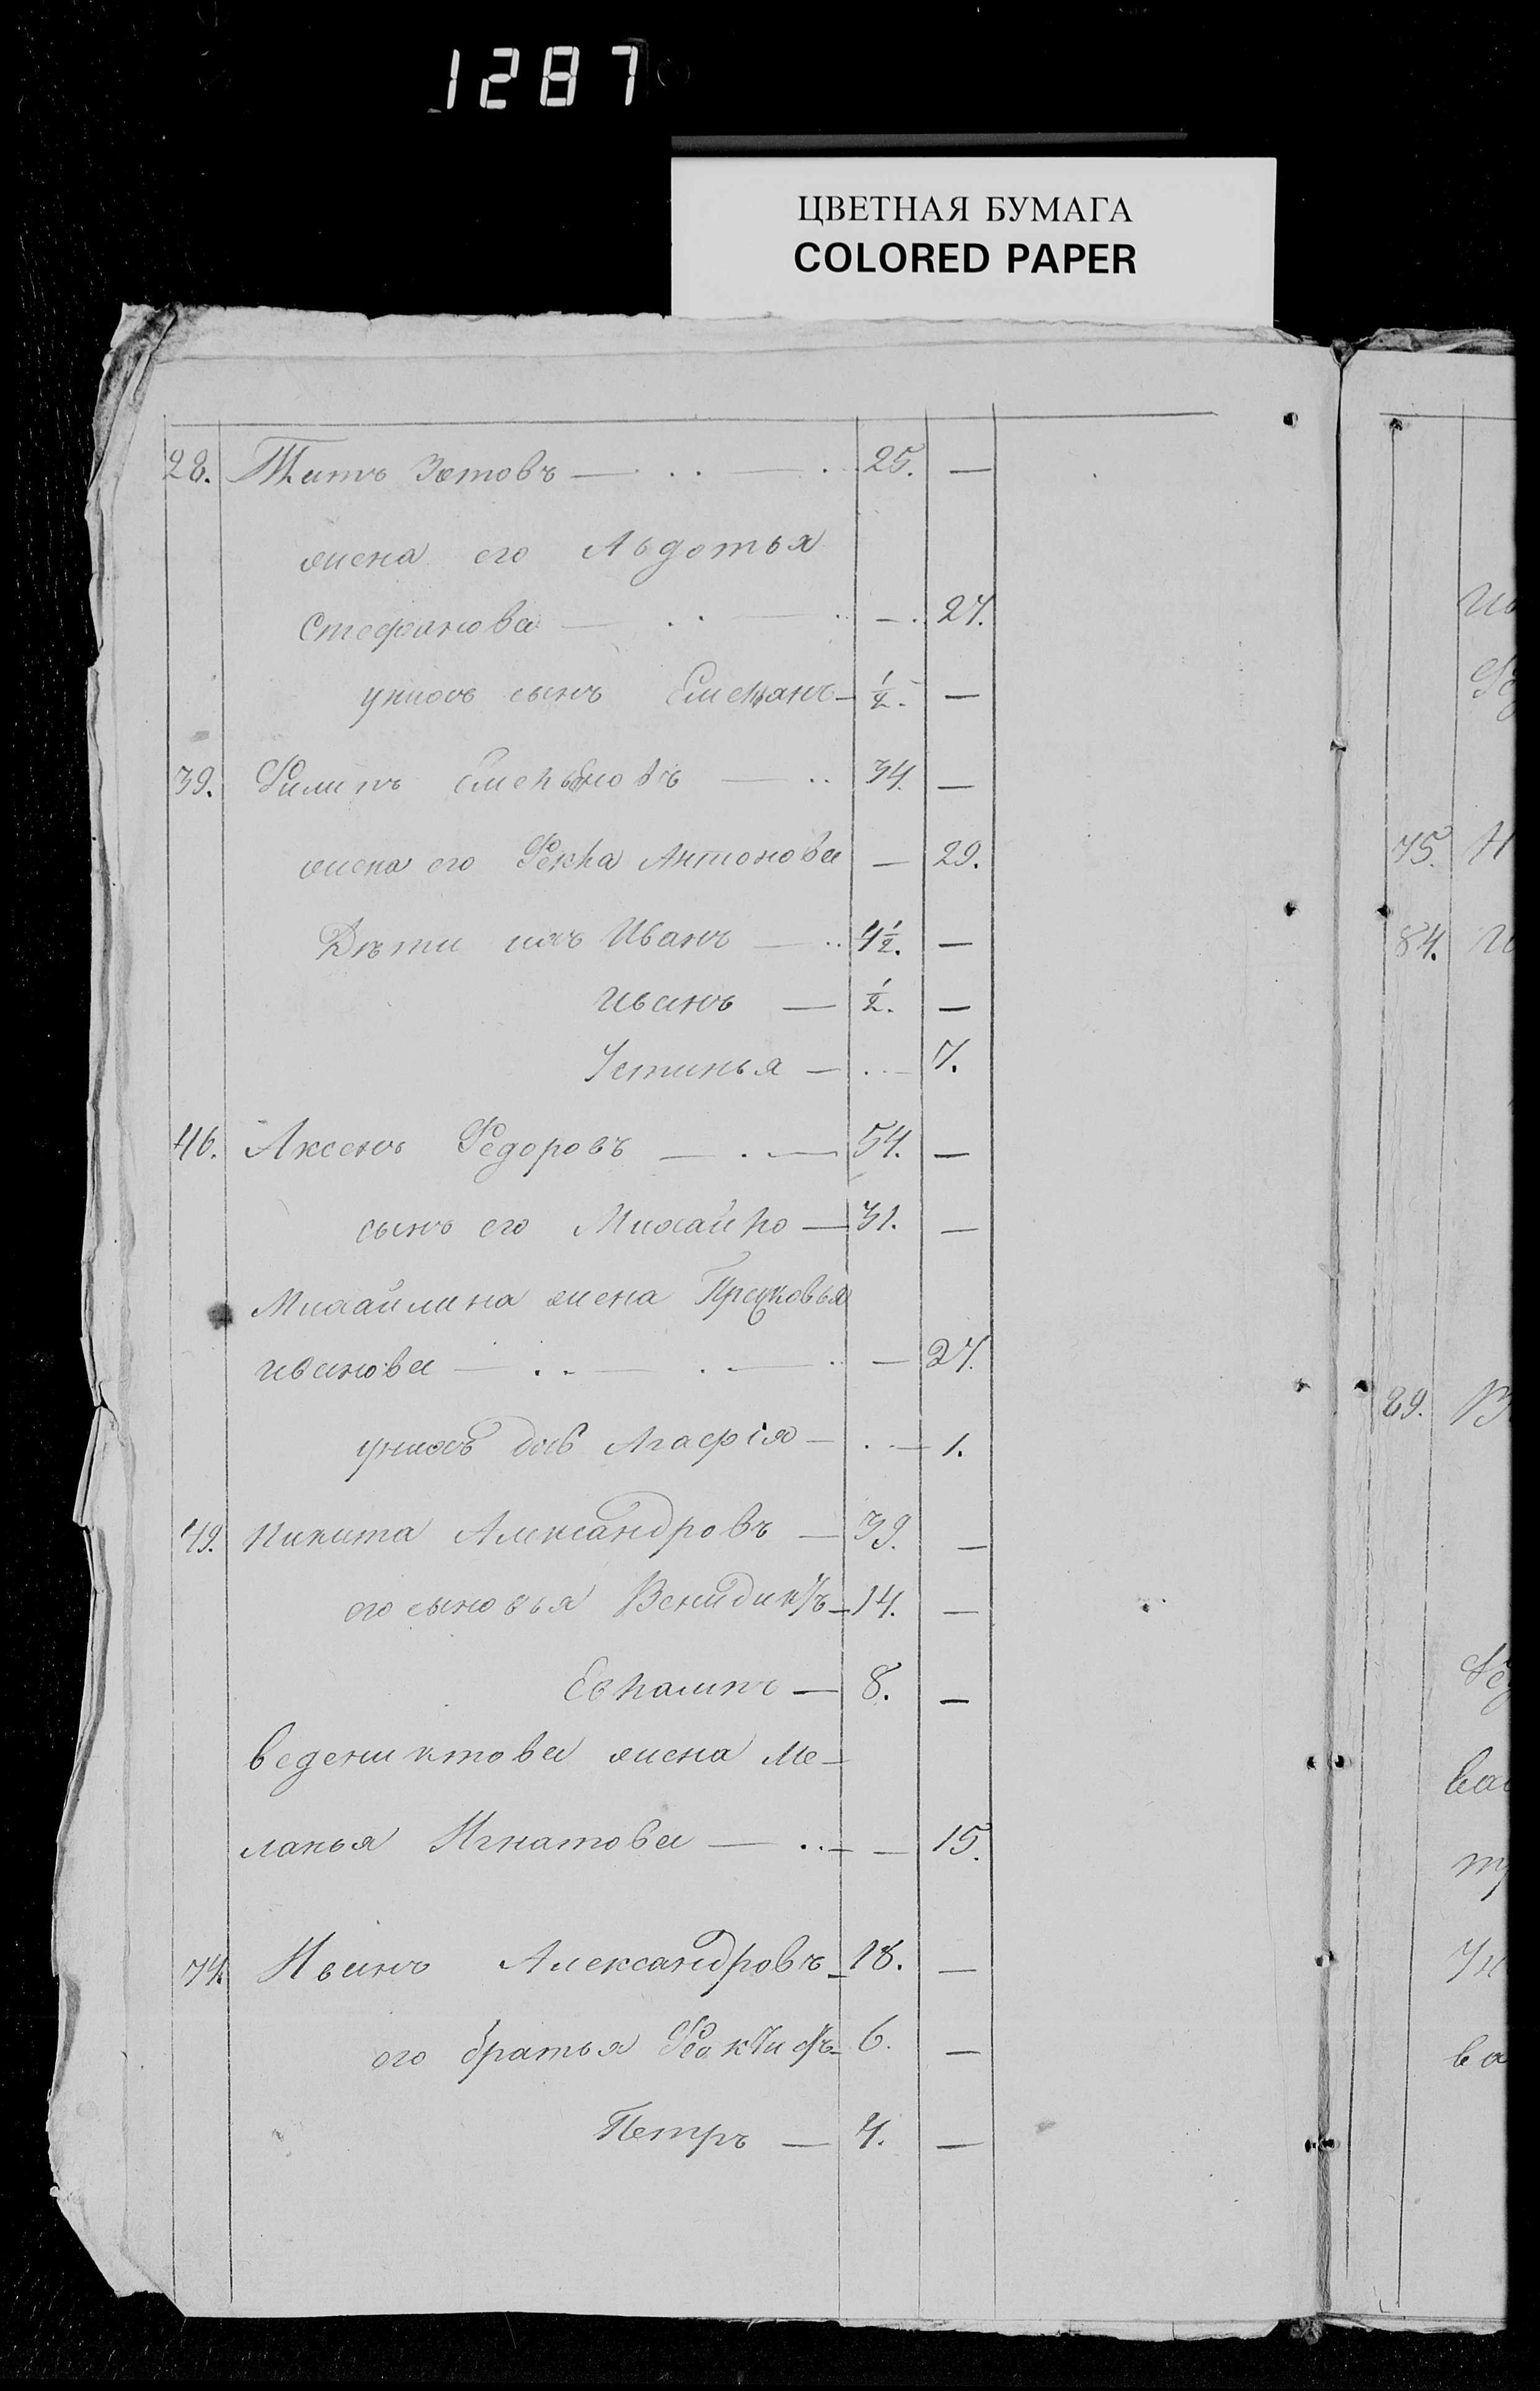 1287
ЦВЕТНАЯ БУМАГА
COLORED PAPER
28. Титъ Зотовъ — . . — . 25. —
жена его Авдотья
Стефанова — . . — . — . 27.
у нихъ сынъ Емельянъ — 1/2. —
39. Филипъ Емельяновъ — . . 34. —
жена его Фекла Антонова — 29.
Дѣти ихъ Иванъ — . . 4 1/2. —
Иванъ — 1/2. —
Устинья — . — 7.
46. Аксенъ Федоровъ — . — 54. —
сынъ его Михайло — 31. —
Михайлина жена Прасковья
Иванова — . . — . — . . — 27.
у нихъ доч Агафія — . — 1.
49. Никита Александровъ — 39. —
его сыновья Венидиктъ — 14. —
Евлампъ — 8. —
Веденихтова жена Ме-
ланья Игнатова — . . — — 15.
74. Иванъ Александровъ — 18. —
его братья Феоктифъ — 6. —
Петръ — 4. —
75. И
84. И
89. В
ва